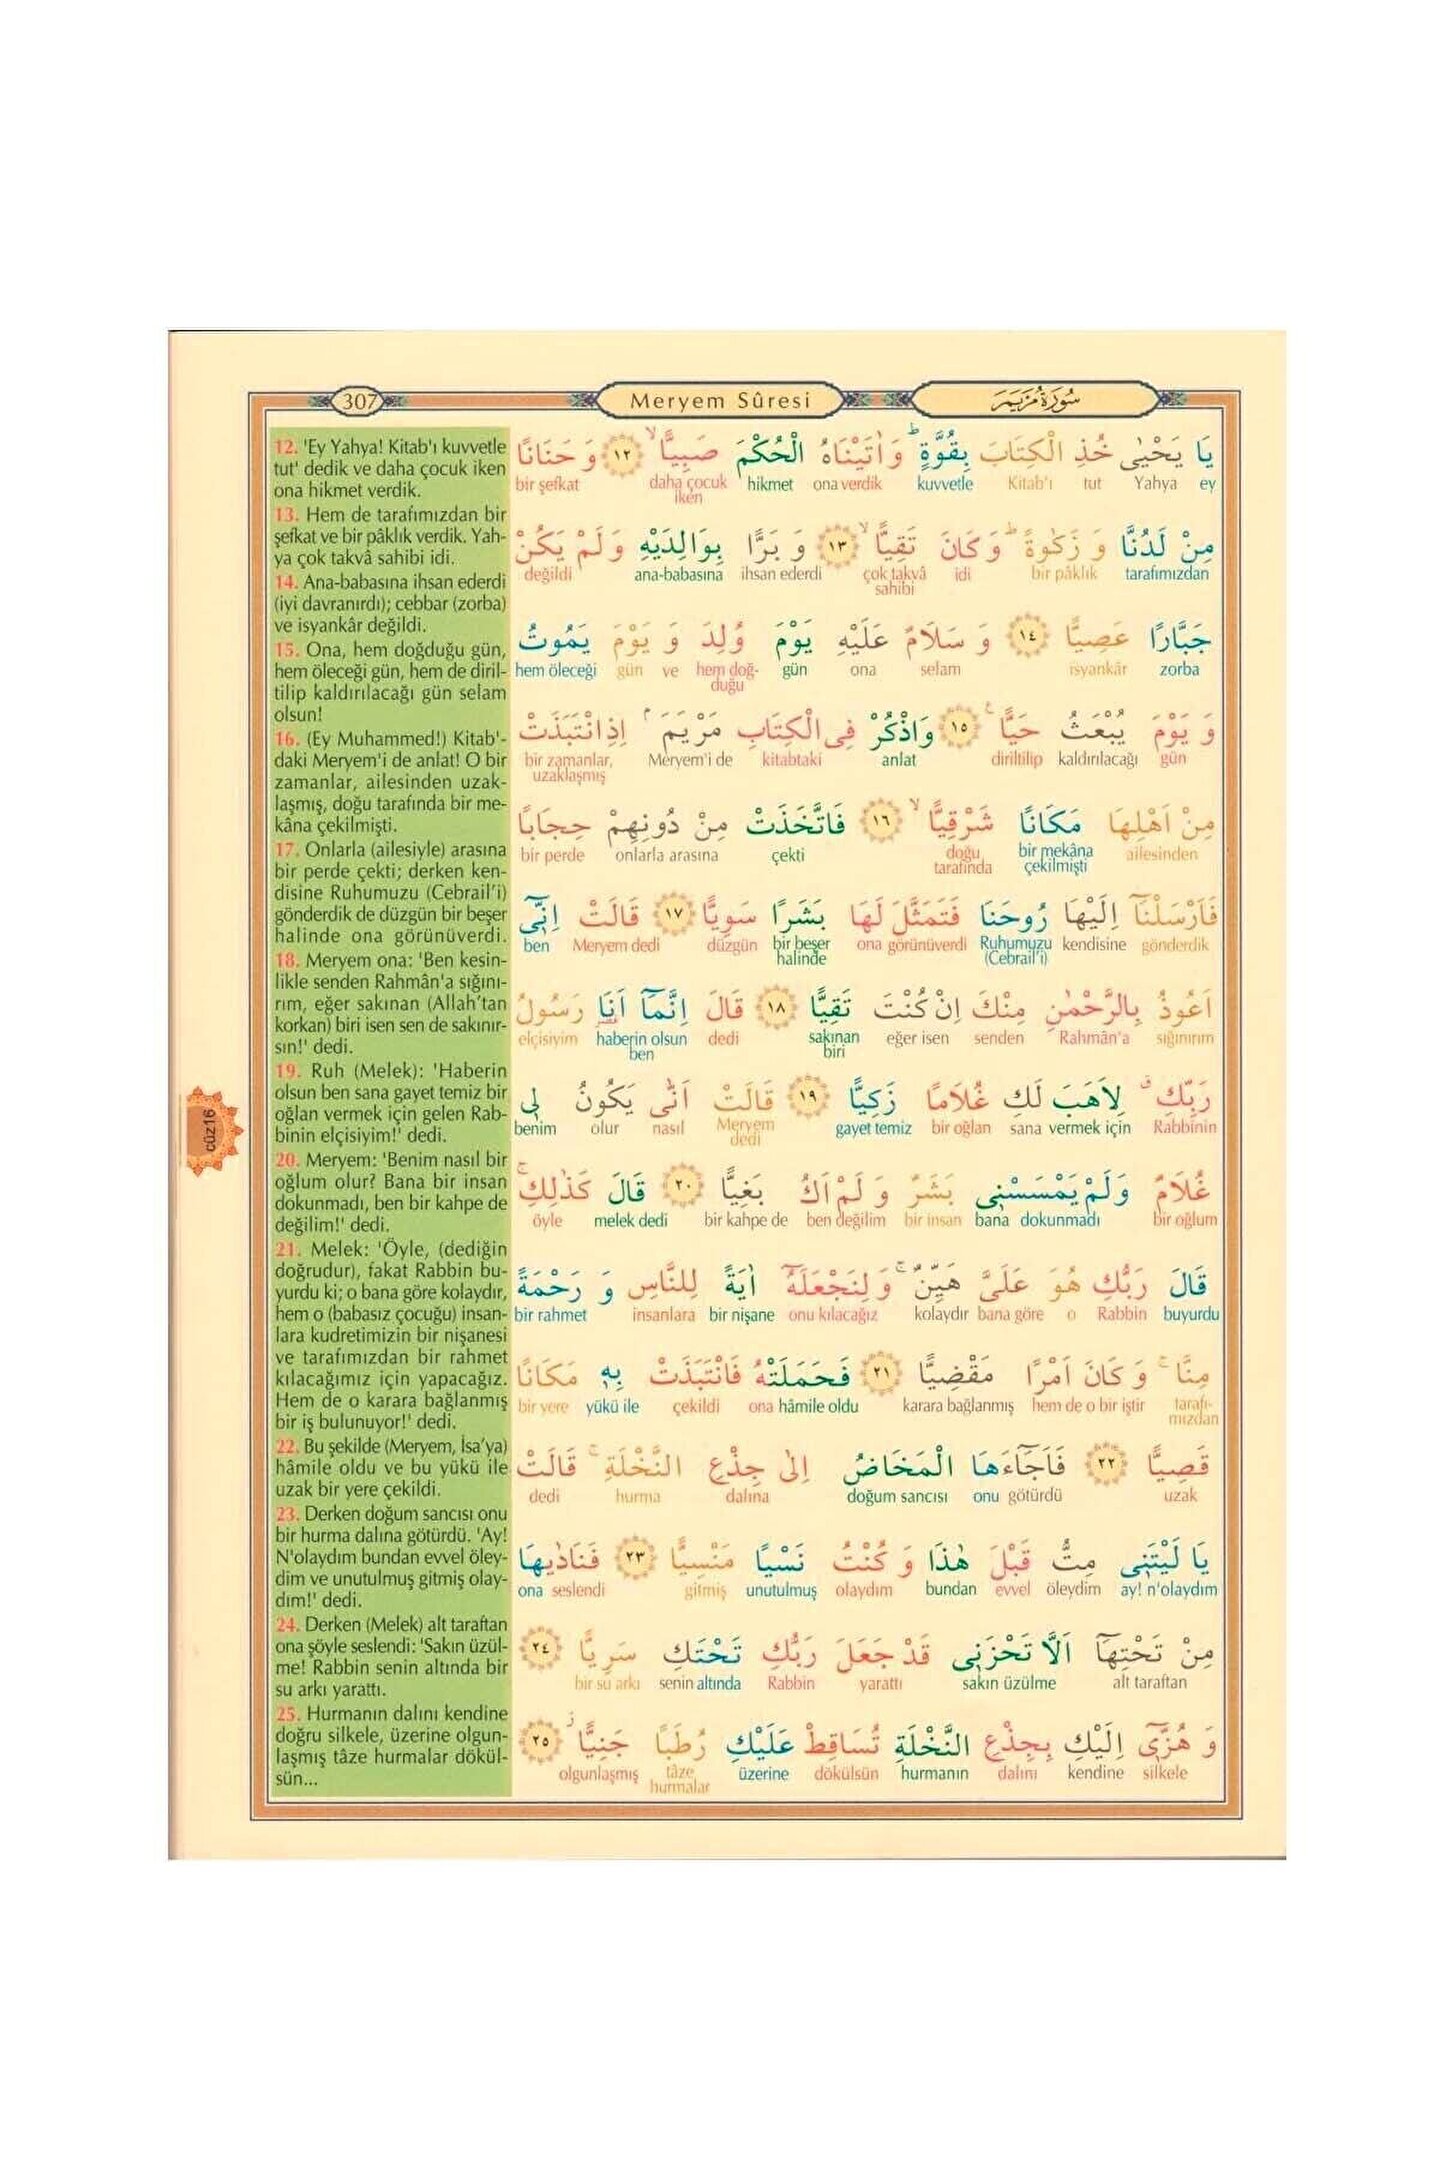 307
Meryem Sûresi
سُورَةُ مَرْيَمَ
12. 'Ey Yahya! Kitab'ı kuvvetle
tut' dedik ve daha çocuk iken
ona hikmet verdik.
13. Hem de tarafımızdan bir
şefkat ve bir pâklık verdik. Yah-
ya çok takvâ sahibi idi.
14. Ana-babasına ihsan ederdi
(iyi davranırdı); cebbar (zorba)
ve isyankâr değildi.
15. Ona, hem doğduğu gün,
hem öleceği gün, hem de diril-
tilip kaldırılacağı gün selam
olsun!
16. (Ey Muhammed!) Kitab'-
daki Meryem'i de anlat! O bir
zamanlar, ailesinden uzak-
laşmış, doğu tarafında bir me-
kâna çekilmişti.
17. Onlarla (ailesiyle) arasına
bir perde çekti; derken ken-
disine Ruhumuzu (Cebrail'i)
gönderdik de düzgün bir beşer
halinde ona görünüverdi.
18. Meryem ona: 'Ben kesin-
likle senden Rahmân'a sığını-
rım, eğer sakınan (Allah'tan
korkan) biri isen sen de sakınır-
sın!' dedi.
19. Ruh (Melek): 'Haberin
olsun ben sana gayet temiz bir
oğlan vermek için gelen Rab-
binin elçisiyim!' dedi.
20. Meryem: 'Benim nasıl bir
oğlum olur? Bana bir insan
dokunmadı, ben bir kahpe de
değilim!' dedi.
21. Melek: 'Öyle, (dediğin
doğrudur), fakat Rabbin bu-
yurdu ki; o bana göre kolaydır,
hem o (babasız çocuğu) insan-
lara kudretimizin bir nişanesi
ve tarafımızdan bir rahmet
kılacağımız için yapacağız.
Hem de o karara bağlanmış
bir iş bulunuyor!' dedi.
22. Bu şekilde (Meryem, İsa'ya)
hâmile oldu ve bu yükü ile
uzak bir yere çekildi.
23. Derken doğum sancısı onu
bir hurma dalına götürdü. 'Ay!
N'olaydım bundan evvel öley-
dim ve unutulmuş gitmiş olay-
dım!' dedi.
24. Derken (Melek) alt taraftan
ona şöyle seslendi: 'Sakın üzül-
me! Rabbin senin altında bir
su arkı yarattı.
25. Hurmanın dalını kendine
doğru silkele, üzerine olgun-
laşmış tâze hurmalar dökül-
sün...
يَا يَحْيٰى خُذِ الْكِتَابَ بِقُوَّةٍۜ وَاٰتَيْنَاهُ الْحُكْمَ صَبِيًّاۙ ﴿١٢﴾ وَ حَنَانًا
bir şefkat daha çocuk hikmet ona verdik kuvvetle Kitab'ı tut Yahya ey
iken
مِنْ لَدُنَّا وَ زَكٰوةًۜ وَ كَانَ تَقِيًّاۙ ﴿١٣﴾ وَ بَرًّا بِوَالِدَيْهِ وَ لَمْ يَكُنْ
değildi ana-babasına ihsan ederdi çok takvâ idi bir pâklık tarafımızdan
sahibi
جَبَّارًا عَصِيًّا ﴿١٤﴾ وَ سَلَامٌ عَلَيْهِ يَوْمَ وُلِدَ وَ يَوْمَ يَمُوتُ
hem öleceği gün ve hem doğ- gün ona selam isyankâr zorba
duğu
وَ يَوْمَ يُبْعَثُ حَيًّاۚ ﴿١٥﴾ وَاذْكُرْ فِى الْكِتَابِ مَرْيَمَۢ اِذِ انْتَبَذَتْ
bir zamanlar, Meryem'i de kitabtaki anlat diriltilip kaldırılacağı gün
uzaklaşmış
مِنْ اَهْلِهَا مَكَانًا شَرْقِيًّاۙ ﴿١٦﴾ فَاتَّخَذَتْ مِنْ دُونِهِمْ حِجَابًا
bir perde onlarla arasına çekti doğu bir mekâna ailesinden
tarafında çekilmişti
فَاَرْسَلْنَٓا اِلَيْهَا رُوحَنَا فَتَمَثَّلَ لَهَا بَشَرًا سَوِيًّا ﴿١٧﴾ قَالَتْ اِنِّٓى
ben Meryem dedi düzgün bir beşer ona görünüverdi Ruhumuzu kendisine gönderdik
halinde (Cebrail'i)
اَعُوذُ بِالرَّحْمٰنِ مِنْكَ اِنْ كُنْتَ تَقِيًّا ﴿١٨﴾ قَالَ اِنَّمَٓا اَنَا رَسُولُ
elçisiyim haberin olsun dedi sakınan eğer isen senden Rahmân'a sığınırım
ben biri
رَبِّكِۗ لِاَهَبَ لَكِ غُلَامًا زَكِيًّا ﴿١٩﴾ قَالَتْ اَنّٰى يَكُونُ لِى
benim olur nasıl Meryem gayet temiz bir oğlan sana vermek için Rabbinin
dedi
غُلَامٌ وَ لَمْ يَمْسَسْنِى بَشَرٌ وَ لَمْ اَكُ بَغِيًّا ﴿٢٠﴾ قَالَ كَذٰلِكِۚ
öyle melek dedi bir kahpe de ben değilim bir insan bana dokunmadı bir oğlum
قَالَ رَبُّكِ هُوَ عَلَىَّ هَيِّنٌۚ وَ لِنَجْعَلَهُٓ اٰيَةً لِلنَّاسِ وَ رَحْمَةً
bir rahmet insanlara bir nişane onu kılacağız kolaydır bana göre o Rabbin buyurdu
مِنَّاۚ وَ كَانَ اَمْرًا مَقْضِيًّا ﴿٢١﴾ فَحَمَلَتْهُ فَانْتَبَذَتْ بِهِ مَكَانًا
bir yere yükü ile çekildi ona hâmile oldu karara bağlanmış hem de o bir iştir tarafı-
mızdan
قَصِيًّا ﴿٢٢﴾ فَاَجَٓاءَهَا الْمَخَاضُ اِلٰى جِذْعِ النَّخْلَةِۚ قَالَتْ
dedi hurma dalına doğum sancısı onu götürdü uzak
يَا لَيْتَنِى مِتُّ قَبْلَ هٰذَا وَ كُنْتُ نَسْيًا مَنْسِيًّا ﴿٢٣﴾ فَنَادٰيهَا
ona seslendi gitmiş unutulmuş olaydım bundan evvel öleydim ay! n'olaydım
مِنْ تَحْتِهَٓا اَلَّا تَحْزَنِى قَدْ جَعَلَ رَبُّكِ تَحْتَكِ سَرِيًّا ﴿٢٤﴾
bir su arkı senin altında Rabbin yarattı sakın üzülme alt taraftan
وَ هُزِّٓى اِلَيْكِ بِجِذْعِ النَّخْلَةِ تُسَاقِطْ عَلَيْكِ رُطَبًا جَنِيًّاۘ ﴿٢٥﴾
olgunlaşmış tâze üzerine dökülsün hurmanın dalını kendine silkele
hurmalar
cüz16